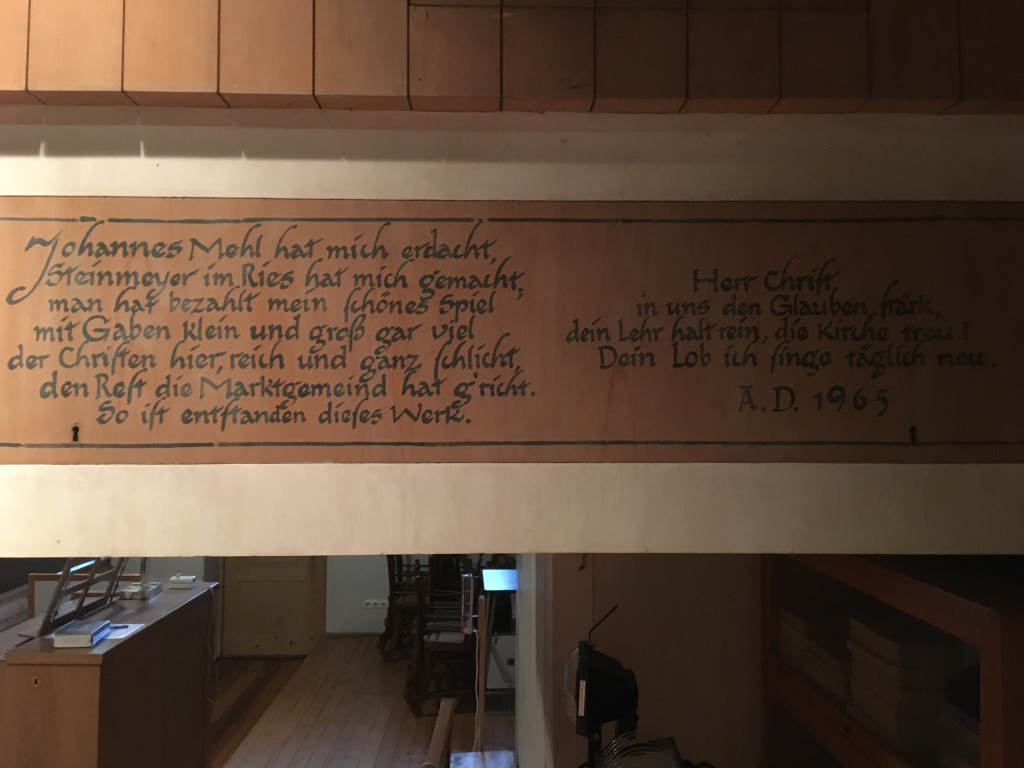 Johannes Mehl hat mich erdacht,
Steinmeyer im Ries hat mich gemacht,
man hat bezahlt mein ſchönes Spiel
mit Gaben klein und groß gar viel
der Chriſten hier, reich und ganz ſchlicht,
den Reſt die Marktgemeind hat gricht.
So iſt entſtanden dieſes Werk.
Herr Chriſt,
in uns den Glauben ſtärk,
dein Lehr halt rein, die Kirche treu!
Dein Lob ich ſinge täglich neu.
A. D. 1965